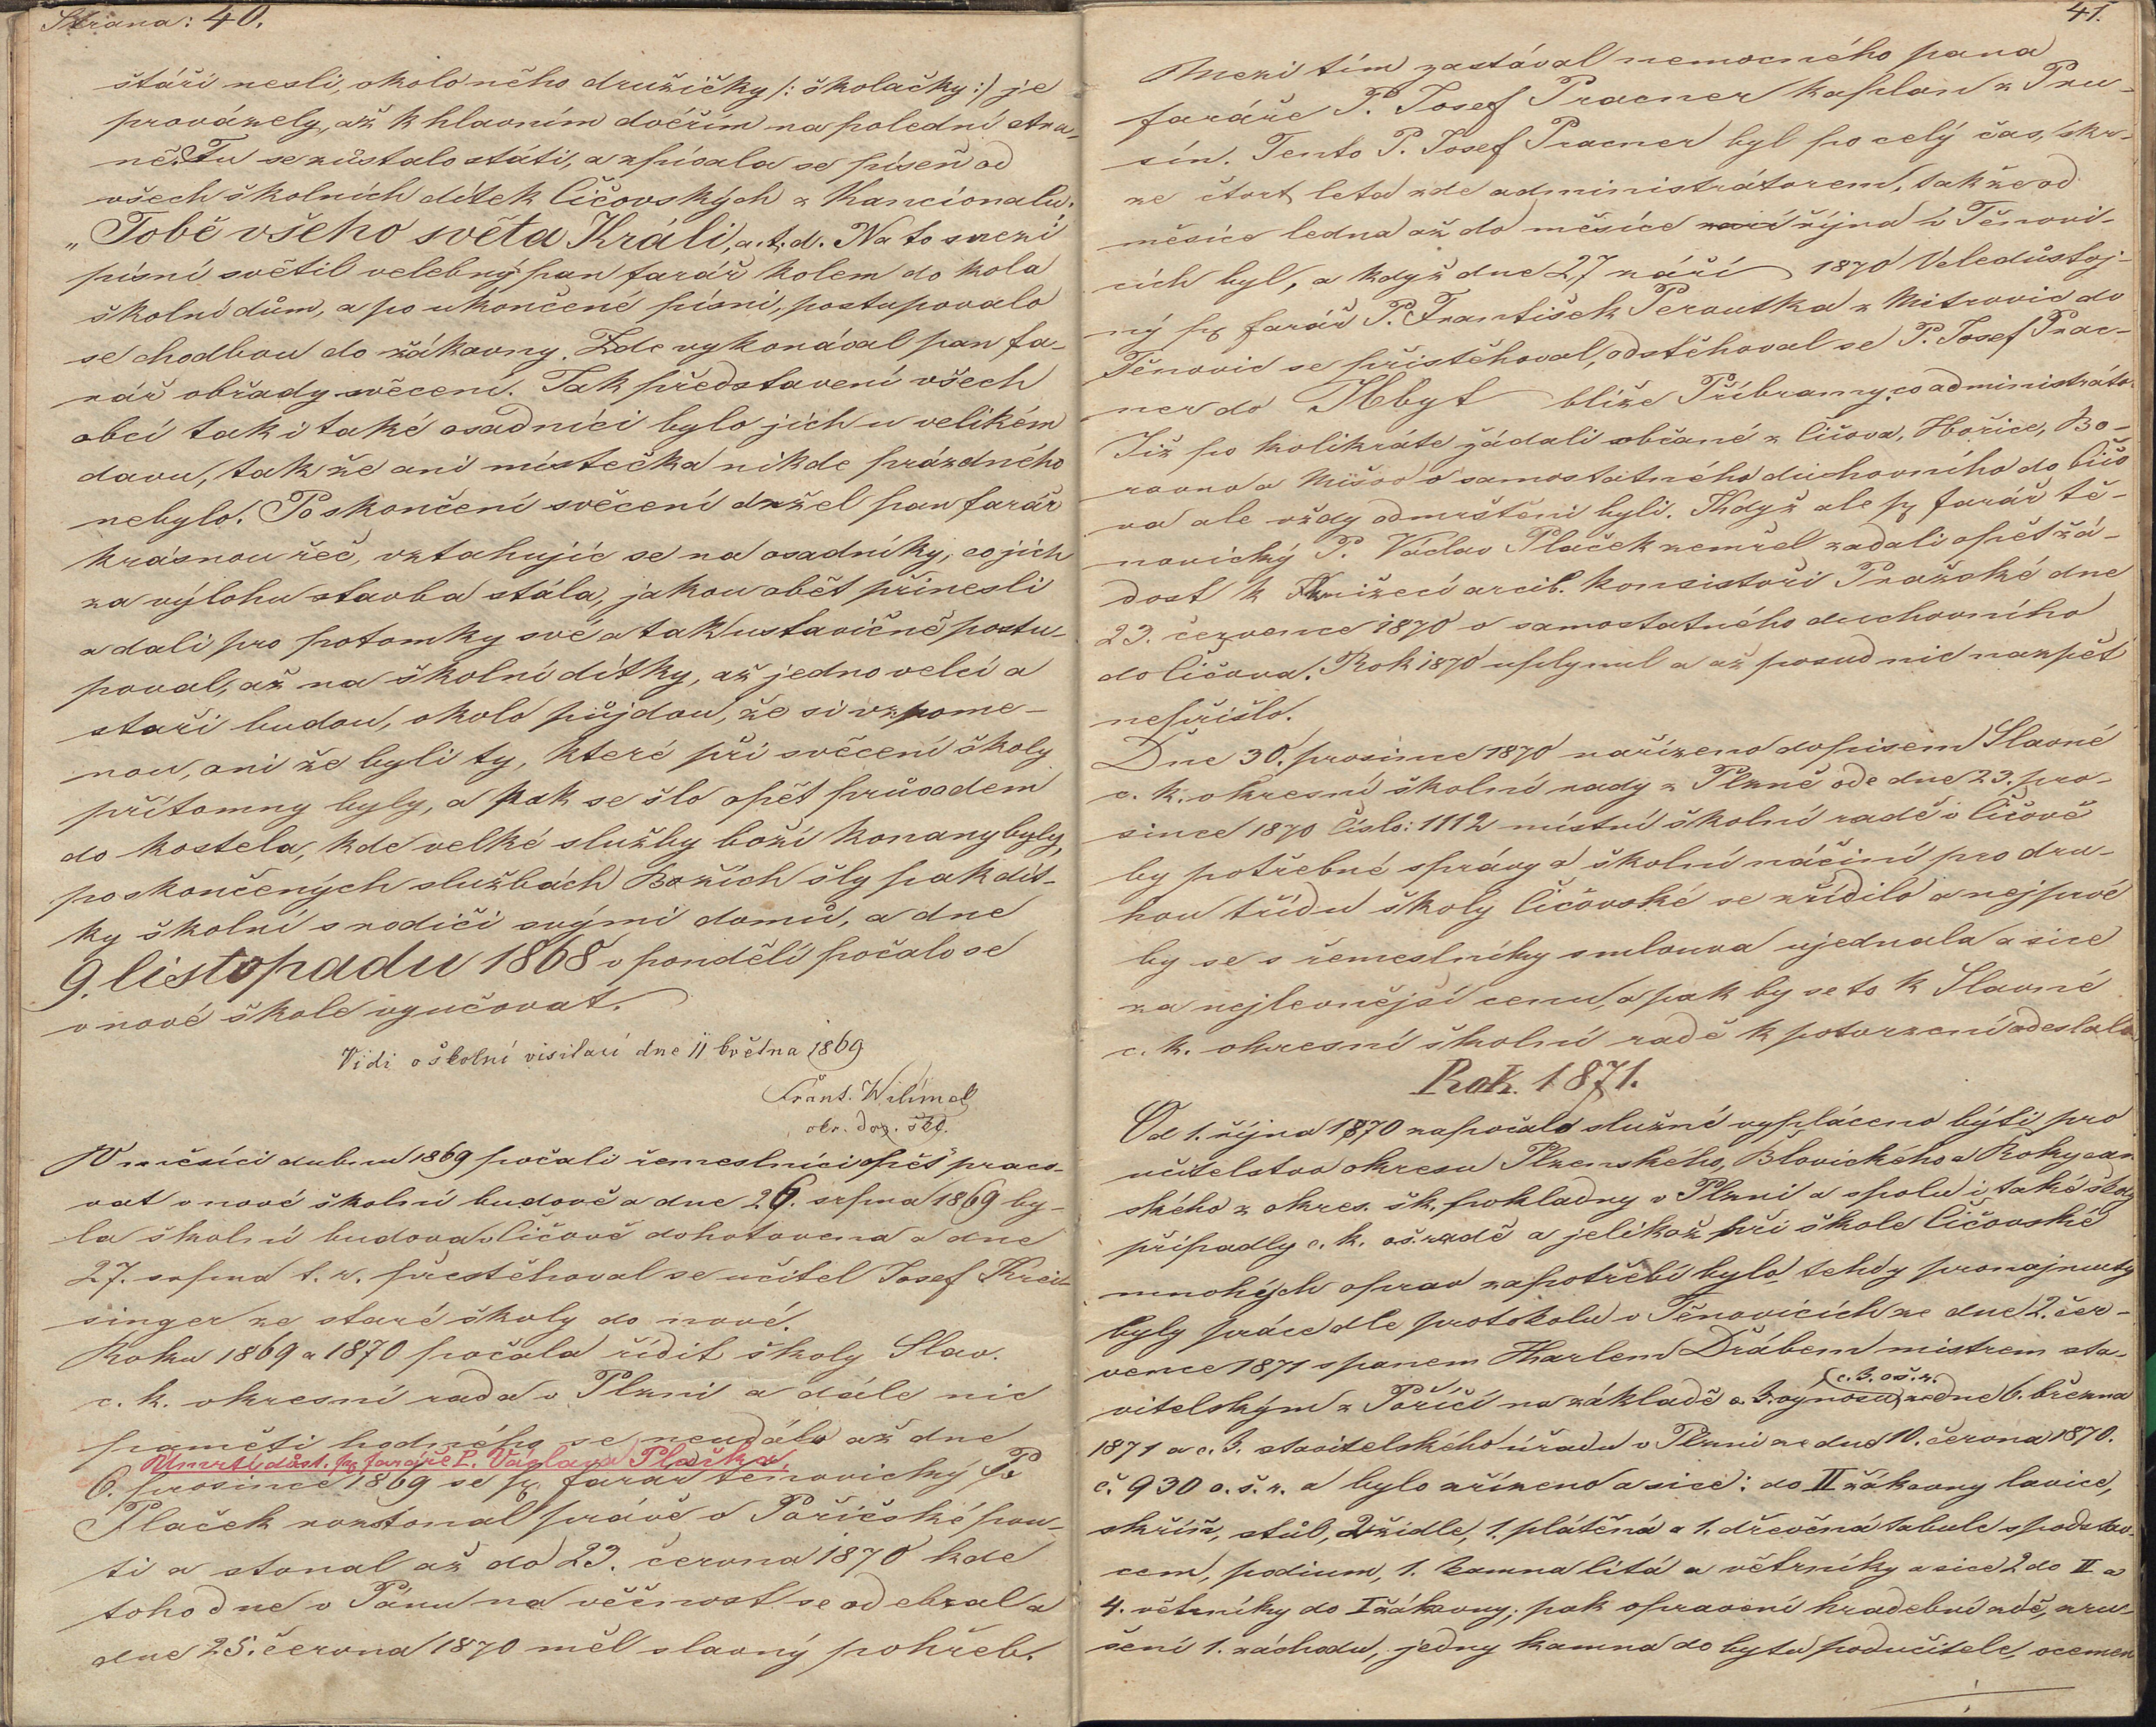 Strana: 40.
stáří nesli, okolo něho družičky /: školačky :/ je
provázely, až k hlavním dvéřím na polední stra-
ně. Tu se zůstalo státi, a zpívala se píseň od
všech školních dítek Čičovských z Kancionalu.
„Tobě všeho světa Králi, a. t. d. Na to s mezi
písní světil velebný pan farář kolem do kola
školní dům, a po ukončené písni, postupovalo
se chodbou do žákovny. Zde vykonával pan fa-
rář obřady svěcení. Tak představení všech
obcí tak i také osadníci bylo jich u velikém
davu, tak že ani místečka nikde prázdného
nebylo. Po skončení svěcení držel pan farář
krásnou řeč, vztahujíc se na osadníky, co jich
za výlohu stavba stála, jakou obět přinesli
a dali pro potomky své a tak ustavičně postu-
poval, až na školní dítky, až jedno velcí a
staří budou, okolo půjdou, že si vzpome-
nou, oni že byli ty, které při svěcení školy
přítomny byly, a pak se šlo opět průvodem
do kostela, kde velké služby boží konany byly,
po skončených službách Božích šly pak dít-
ky školní s rodiči svými domů, a dne
9. listopadu 1868 v pondělí počalo se
v nové škole vyučovat.
Vidi o školní visitaci dne 11 května 1869
Frant. Wilímek
okr. doz. škl.
V měsíci dubnu 1869 počali řemeslníci opět praco-
vat v nové školní budově a dne 26. srpna 1869 by-
la školní budova v Čičově dohotovena a dne
27. srpna t. r. přestěhoval se učitel Josef
singer ze staré školy do nové.
Roku 1869 a 1870 počala řídit školy Slav.
c. k. okresní rada v Plzni a dále nic
paměti hodného se neudálo až dne
Umrtí důst. pp. faráře P. Václava Plačka.
6. prosince 1869 se pp. farář těnovický P.
Plaček rozstonal právě o Poříčské pou-
ti a stonal až do 23. června 1870 kde
toho dne v Pánu na věčnost se odebral a
dne 25. června 1870 měl slavný pohřeb.
41.
Mezi tím zastával nemocného pana
faráře P. Josef Pracner kaplan z Pru-
sín. Tento P. Josef Pracner byl po celý čas, skr-
ze čtvrt leta zde administrátorem, tak že od
měsíce ledna až do měsíce října v Těnovi-
cích byl, a když dne 27 září 1870 Veledůstoj-
ný pp farář P. František Peroutka z Mitrovic do
Těnovic se přistěhoval, odstěhoval se P. Josef Prac-
ner do Hbyt blíže Příbramy, co administrátor.
Již po kolikráte žádali občané z Čičova, Hořice, Bo-
rovna Mišov o samostatného duchovního do Čičo
va ale vždy odmrštěni byli. Když ale pp farář tě-
novický P. Václav Plaček zemřel zadali opět žá-
dost k Knížecí arcib. konsistoři Pražské dne
23. července 1870 o samostatného duchovního
do Čičova. Rok 1870 uplynul a až posud nic nazpět
nepřišlo.
Dne 30. prosince 1870 nařízeno dopisem Slavné
c. k. okresní školní rady z Plzně ode dne 23. pro-
since 1870 Číslo: 1112 místní školní radě v Čičově
by potřebné správy a školní náčiní pro dru-
hou třídu školy Čičovské se zřídilo a nejprvé
by se s řemeslníky smlouva ujednala a sice
za nejlevnější cenu, a pak by se to k Slavné
c. k. okresní školní radě k potvrzení odeslalo
Rok. 1871.
Od 1. října 1870 započalo služné vypláceno býti pro
učitelstvo okresu Plzenského, Blovického a Rokycan
ského z okres. šk. pokladny v Plzni a spolu i také školy
připadly c. k. o.š. radě a jelikož při škole Čičovské
mnohých oprav zapotřebí bylo tehdy pronajmuty
byly práce dle protokolu v Těnovicích ze dne 2. čer-
vence 1871 s panem Karlem Drábem mistrem sta-
vitelským z Poříčí na základě c. k. vynosu (c. k. oš. r.) ze dne 6. března
1871 a c. k. stavitelského úřadu v Plzni ze dne 10. června 1870.
č. 930 o. š. r. a bylo zřízeno a sice: do II žákovny lavice,
skříň, stůl, 2 židle, 1. plátěná a 1. dřevěná tabule s podstav-
cem, podium, 1. kamna litá a větrníky a sice 2 do II a
4. větrníky do I žákovny; pak opravení hradební zdě, zru-
šení 1. záchodu, jedny kamna do bytu podučitele, ocemen